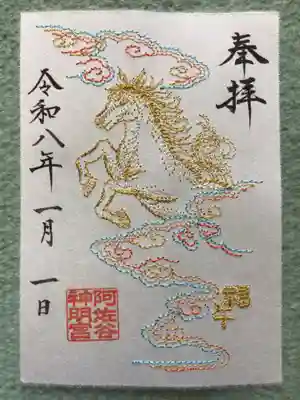 奉拝
福午
令和八年一月一日
阿佐谷
神明宮